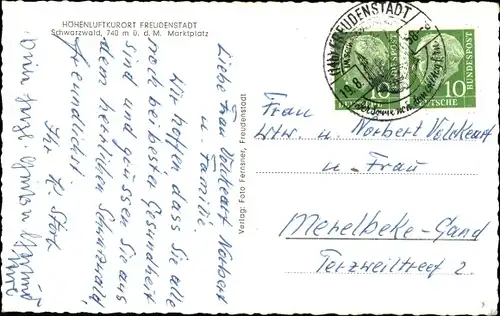 HÖHENLUFTKURORT FREUDENSTADT
Schwarzwald, 740 m ü. d. M. Marktplatz
Liebe Frau Volckaert Norbert
u. Familie.
Wir hoffen dass Sie alle
noch bei bester Gesundheit
sind und grüssen Sie aus
dem herrlichen Schwarzwald,
freundlichst.
Ihr K. Stork
Verlag: Foto Fernsner, Freudenstadt
FREUDENSTADT
DEUTSCHE BUNDESPOST
10
DEUTSCHE BUNDESPOST
10
Frau
Wtw. u. Norbert Volckaert
u Frau
Merelbeke-Gand
Terzweiltreef 2.